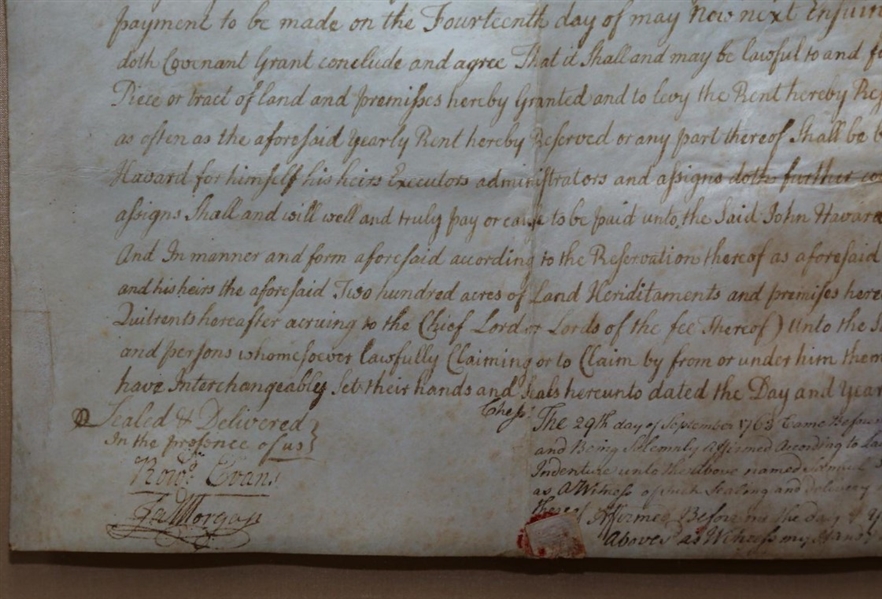 payment to be made on the Fourteenth day of may Now next Ensuin
doth Covenant Grant conclude and agree That it Shall and may be lawful to and f
Piece or tract of land and premisses hereby Granted and to levy the Rent hereby Res
as often as the aforesaid Yearly Rent hereby Reserved or any part thereof Shall be b
Havard for himself his heirs Executors administrators and assigns doth further co
assigns Shall and will well and truly pay or cause to be paid unto the Said John Havard
And In manner and form aforesaid according to the Reservation thereof as aforesaid
and his heirs the aforesaid Two hundred acres of Land Heriditaments and premises here
Quitrents hereafter acruing to the Chief Lord or Lords of the fee Thereof) Unto the S
and persons whomesoever lawfully Claiming or to Claim by from or under him them
have Interchangeably Set their hands and Seals hereunto dated the Day and Year
Sealed & Delivered
In the presence of us
Evans
Morgan
Chess.
The 29th day of September 1763 Came Before
and Being Solemnly Affirmed According to La
Indenture unto the above named Samuel
as A Witness of Sealing and delivery
thereof Affirmed Before me the day & Y
Above as Witness my Hand